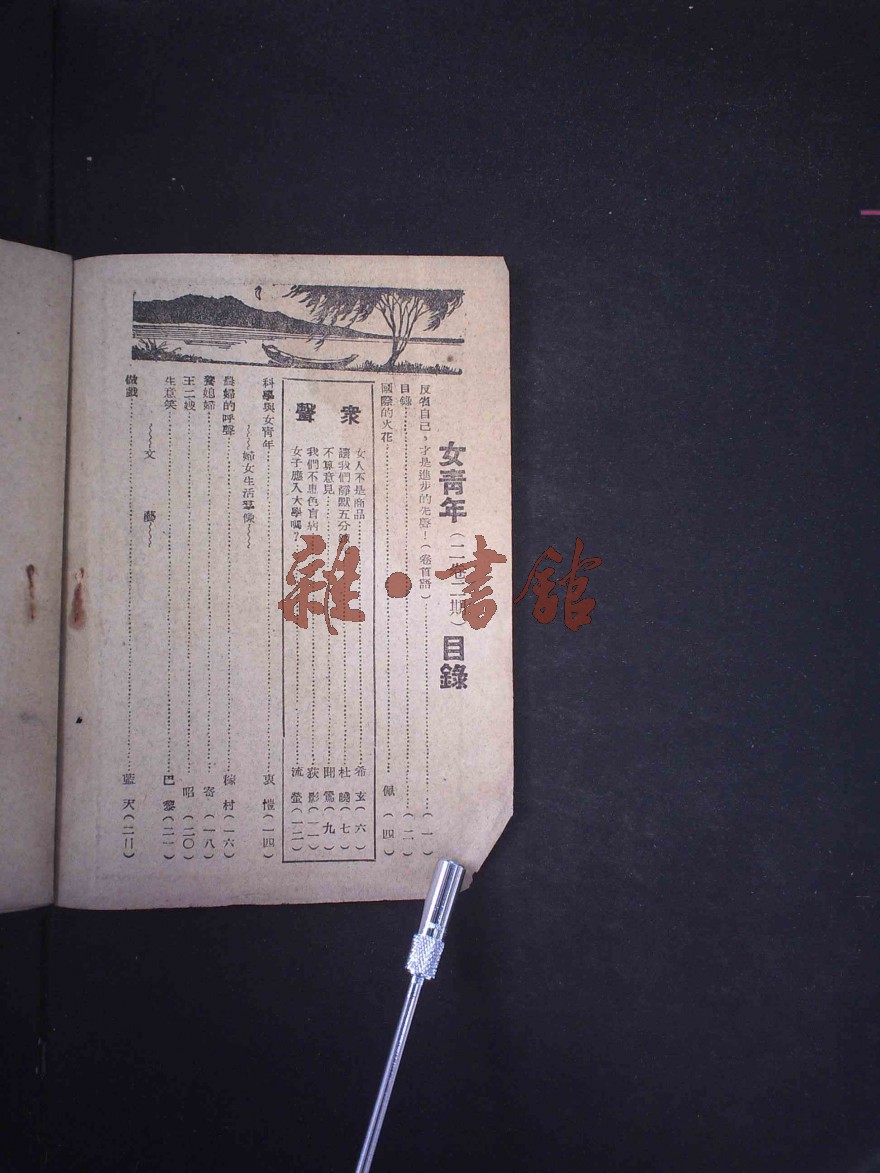 女青年（二卷二期）目錄
反省自己，才是進步的先聲！（卷首語）（一）
目錄（二）
國際的火花 佩（四）
衆聲
女人不是商品 希玄（六）
讓我們靜默五分鐘 杜曉（七）
不算意見 聞鶯（九）
我們不患色盲病 荻影（一一）
女子應入大學嗎？ 流螢（一二）
科學與女青年 愷（一四）
婦女生活羣像
農婦的呼聲 稼村（一六）
養媳婦 寄（一八）
王二嫂 昭（二〇）
生意笑 巴黎（二一）
文藝
做戲 藍天（二二）
雜·書館